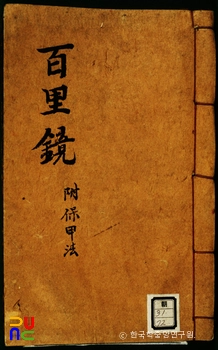 百里鏡
附保甲法
한국학중앙연구원